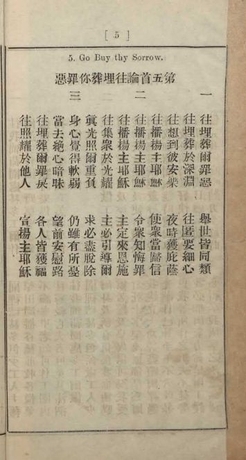 [ 5 ]
5. Go Buy thy Sorrow.
第五首論往埋葬你罪惡
一 往埋葬爾罪惡 舉世皆同類
往埋葬於深淵 往匿要細心
往想到彼安樂 夜時獲庇蔭
往播揚主耶穌 使衆當歸信
二 往播揚主耶穌 令衆知悔罪
往播揚主耶穌 主定來恩施
往集衆於光耀 主必引導爾
眞光照爾重負 求必盡脫除
三 身心覺得軟弱 仍雖有所憂
當去絶心暗昧 望前安慰路
往埋葬爾罪戾 各人皆獲福
往照耀於他人 宣揚主耶穌